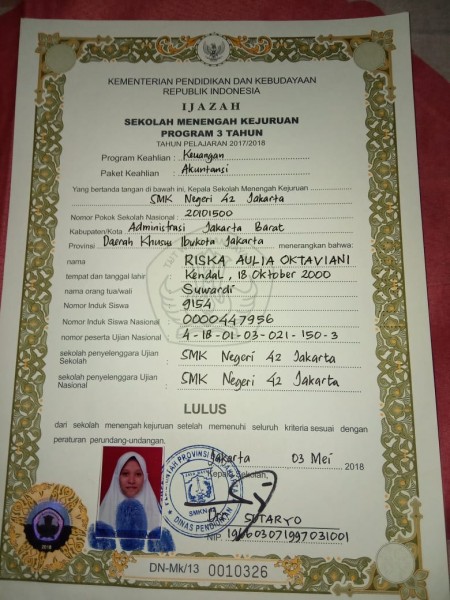 KEMENTERIAN PENDIDIKAN DAN KEBUDAYAAN
REPUBLIK INDONESIA
IJAZAH
SEKOLAH MENENGAH KEJURUAN
PROGRAM 3 TAHUN
TAHUN PELAJARAN 2017/2018
Program Keahlian : Keuangan
Paket Keahlian : Akuntansi
Yang bertanda tangan di bawah ini, Kepala Sekolah Menengah Kejuruan
SMK Negeri 42 Jakarta
Nomor Pokok Sekolah Nasional : 20101500
Kabupaten/Kota Administrasi Jakarta Barat
Provinsi Daerah Khusus Ibukota Jakarta menerangkan bahwa:
nama RISKA AULIA OKTAVIANI
tempat dan tanggal lahir Kendal, 18 Oktober 2000
nama orang tua/wali Suwardi
Nomor Induk Siswa 9154
Nomor Induk Siswa Nasional 0000447956
nomor peserta Ujian Nasional : 4-18-01-03-021-150-3
sekolah penyelenggara Ujian Sekolah : SMK Negeri 42 Jakarta
sekolah penyelenggara Ujian Nasional : SMK Negeri 42 Jakarta
LULUS
dari sekolah menengah kejuruan setelah memenuhi seluruh kriteria sesuai dengan
peraturan perundang-undangan.
Jakarta 03 Mei 2018
Kepala Sekolah,
DINAS PENDIDIKAN
Drs. SUTARYO
NIP. 196603071997031001
DN-Mk/13 0010326